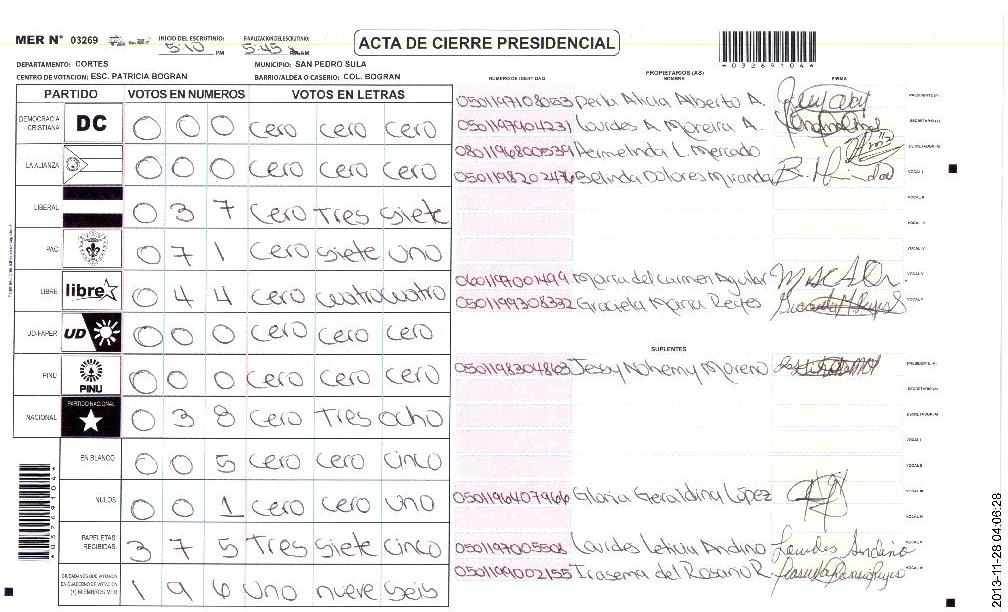 MER N° 03269
INICIO DEL ESCRUTINIO: 5:10 PM
FINALIZACION DEL ESCRUTINIO: 5:45
ACTA DE CIERRE PRESIDENCIAL
DEPARTAMENTO: CORTES
MUNICIPIO: SAN PEDRO SULA
CENTRO DE VOTACION: ESC. PATRICIA BOGRAN
BARRIO/ALDEA O CASERIO: COL. BOGRAN
032691046
PARTIDO VOTOS EN NUMEROS VOTOS EN LETRAS
DEMOCRACIA CRISTIANA DC 0 0 0 cero cero cero
LA ALIANZA 0 0 0 cero cero cero
LIBERAL 0 3 7 cero Tres siete
PAC 0 7 1 cero siete uno
LIBRE libre 0 4 4 cero cuatro cuatro
UD-FAPER UD 0 0 0 cero cero cero
PINU PINU 0 0 0 cero cero cero
NACIONAL PARTIDO NACIONAL 0 3 8 cero Tres ocho
EN BLANCO 0 0 5 cero cero cinco
NULOS 0 0 1 cero cero uno
PAPELETAS RECIBIDAS 3 7 5 Tres siete cinco
CIUDADANOS QUE VOTARON EN CUADERNO DE VOTACION (+) MIEMBROS MER 1 9 6 uno nueve seis
NUMERO DE IDENTIDAD PROPIETARIOS (AS) NOMBRE FIRMA
0501197108053 Perla Alicia Alberto A. PRESIDENTE (A)
0501197404231 Lourdes A. Moreira A. SECRETARIO (A)
0801196800539 Hermelinda L. Mercado ESCRUTADOR (A)
0501198202476 Belinda Dolores Miranda VOCAL I
VOCAL II
VOCAL III
VOCAL IV
0601197001499 Maria del Carmen Aguilar VOCAL V
0501199308332 Graciela Maria Reyes
SUPLENTES
0501198304863 Jessy Nohemy Moreno PRESIDENTE (A)
SECRETARIO (A)
ESCRUTADOR (A)
VOCAL I
VOCAL II
0501196407966 Gloria Geraldina López VOCAL III
VOCAL IV
0501197005508 Lourdes Leticia Andino Lourdes Andino VOCAL V
0501199002155 Irasema del Rosario R.
032691046
2013-11-28 04:06:28